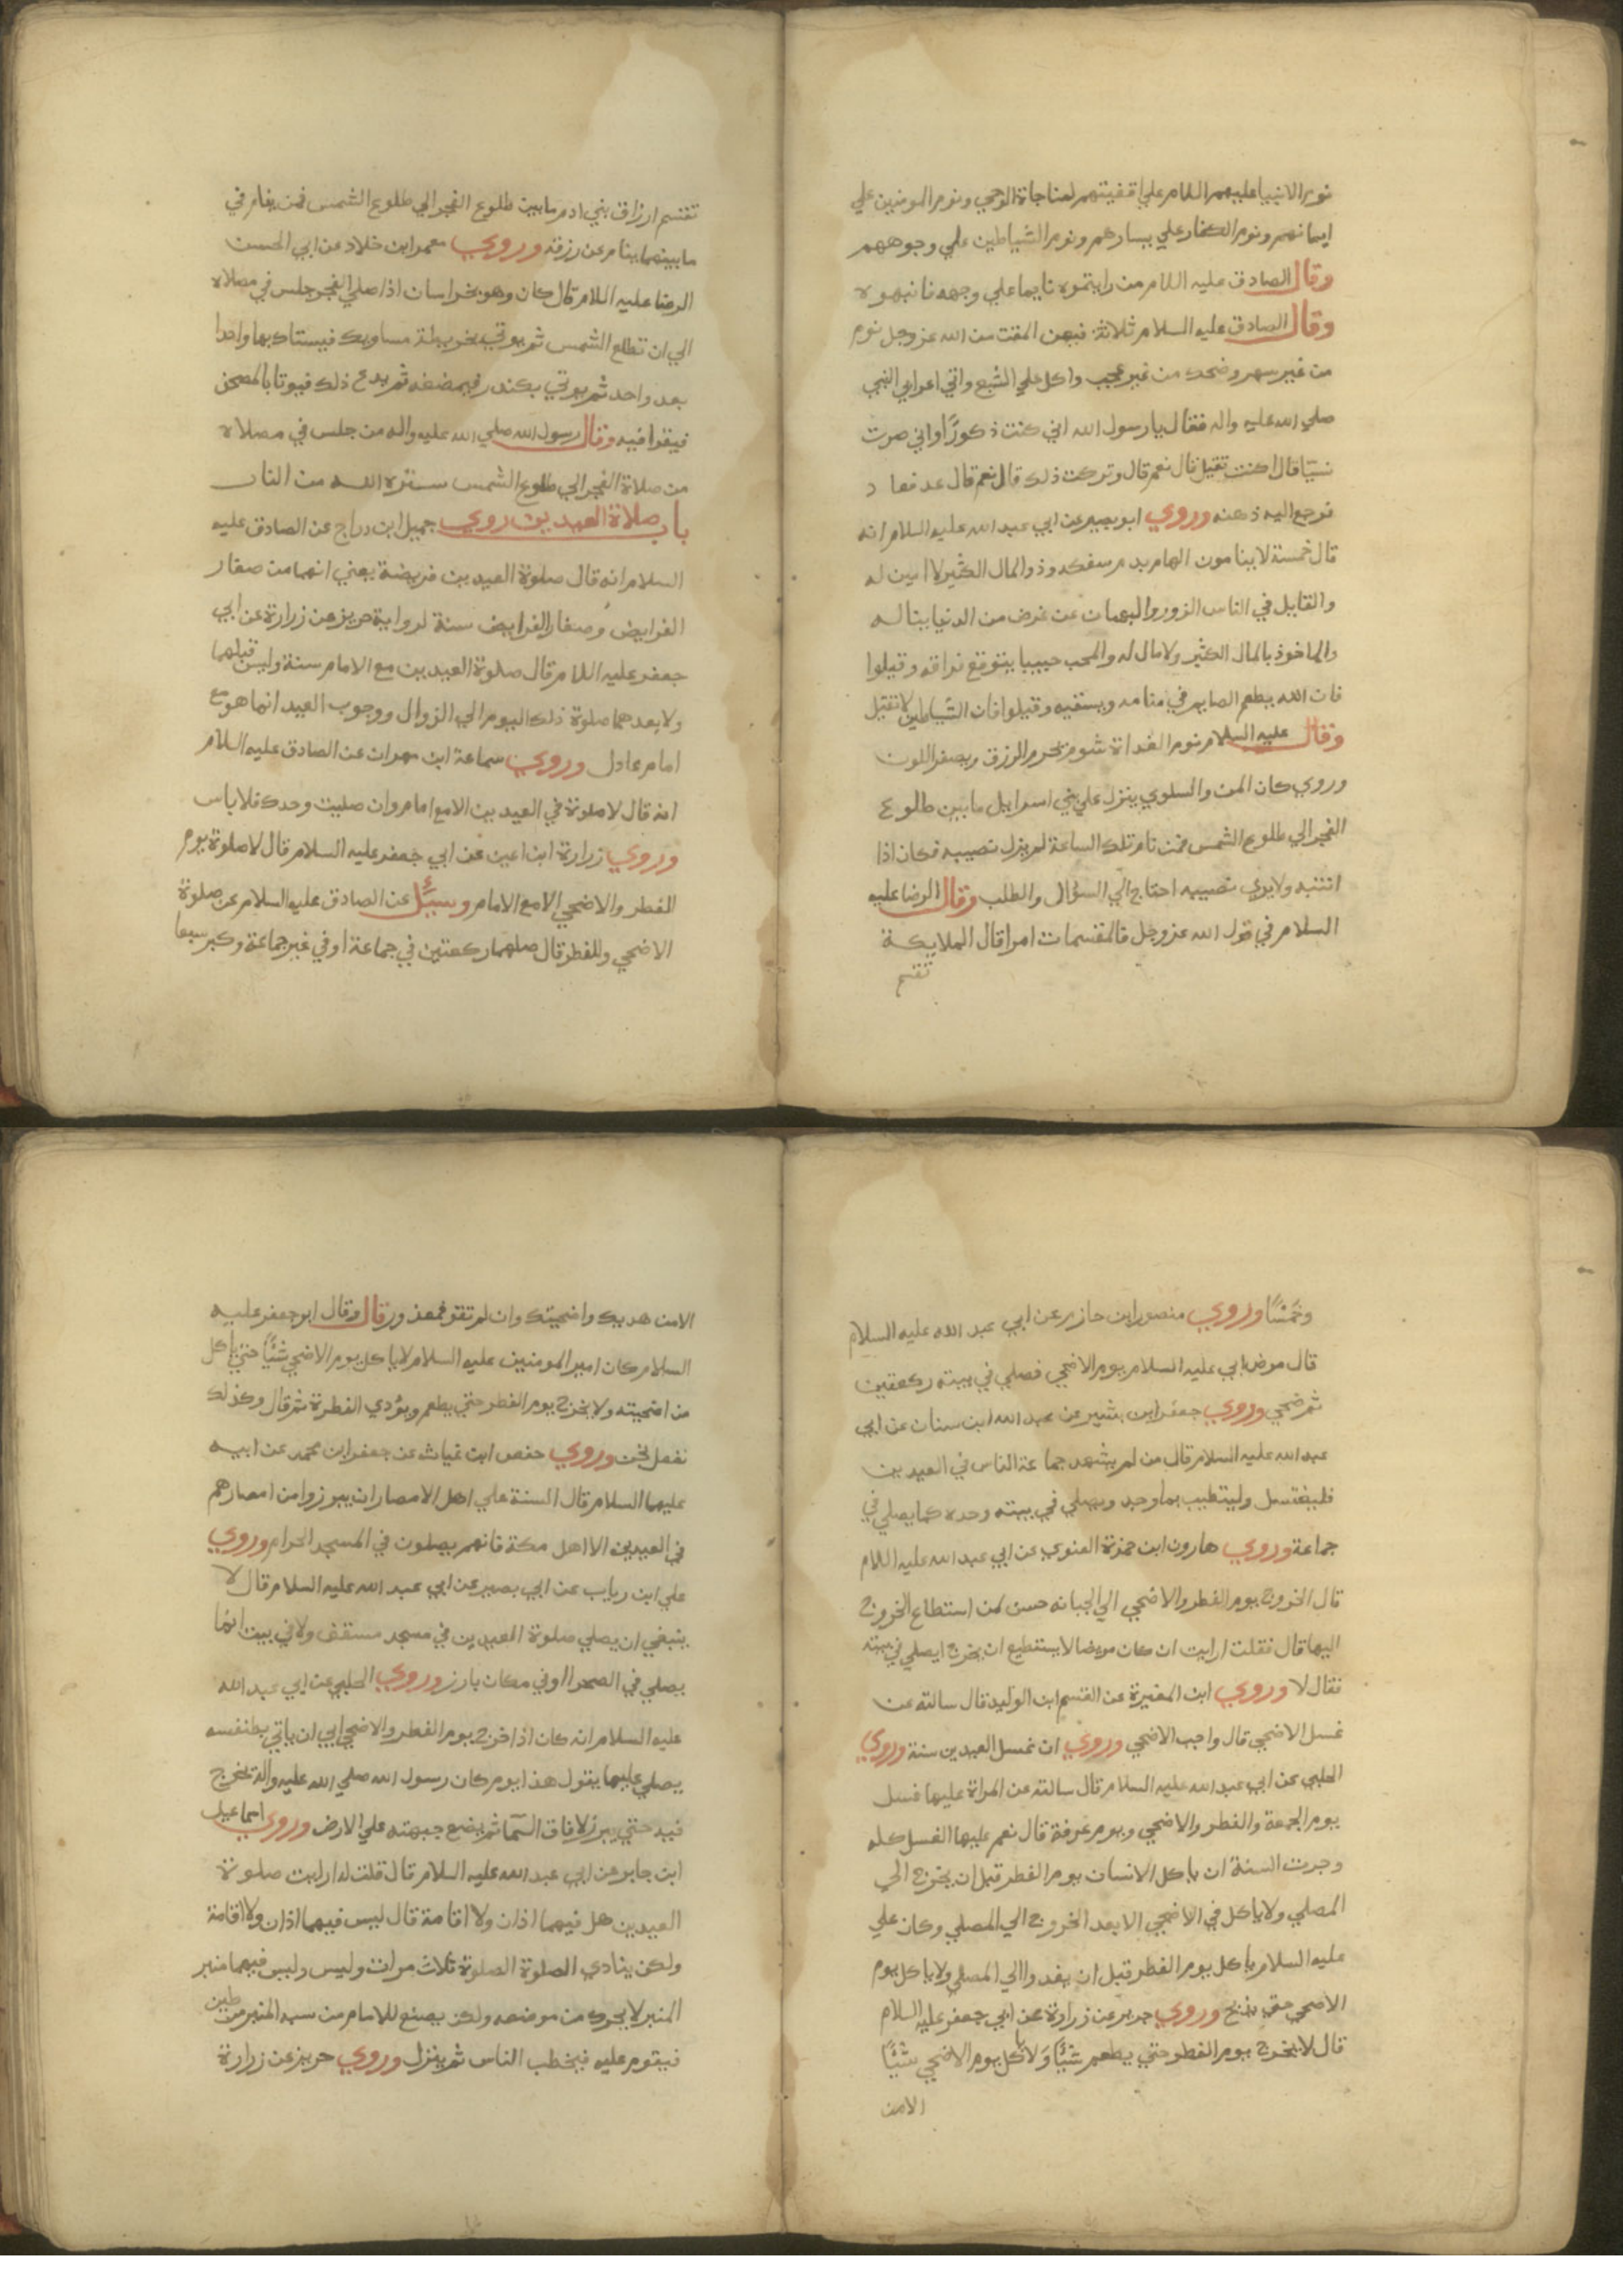 نوم الانبيا عليهم السلام علي اقفيتهم لمناجاة الوحي ونوم المومنين علي
ايمانهم ونوم الكفار علي يسارهم ونوم الشياطين علي وجوههم
وقال الصادق عليه السلام من رايتموه نايما علي وجهه فانبهوه
وقال الصادق عليه السلام ثلاثة فيهن المقت من الله عز وجل نوم
من غير سهر وضحك من غير عجب واكل علي الشبع واتي اعرابي النبي
صلي الله عليه واله فقال يا رسول الله اني كنت ذكورًا واني صرت
نسيّا قال اكنت تقيل قال نعم قال وتركت ذلك قال نعم قال عد فعاد
فرجع اليه ذهنه وروي ابو بصير عن ابي عبد الله عليه السلام انه
قال خمسة لا ينامون الهام بدم يسفكه وذو المال الكثير لا امين له
والقايل في الناس الزور والبهتان عن غرض من الدنيا يناله
والماخوذ بالمال الكثير ولا مال له والمحب حبيبا يتوقع فراقه وقيلوا
فان الله يطعم الصايم في منامه ويسقيه وقيلوا فان الشياطين لا تقيل
وقال عليه السلام نوم الغداة شوم تحرم الرزق ويصفر اللون
وروي كان المن والسلوي ينزل علي بني اسراييل ما بين طلوع
الفجر الي طلوع الشمس فمن نام تلك الساعة لم ينزل نصيبه فكان اذا
انتبه ولا يري نصيبه احتاج الي السؤال والطلب وقال الرضا عليه
السلام في قول الله عز وجل فالمقسمات امرا قال الملايكة
تقسم
تقسم ارزاق بني ادم ما بين طلوع الفجر الي طلوع الشمس فمن ينام في
ما بينهما ينام عن رزقه وروي معمر ابن خلاد عن ابي الحسن
الرضا عليه السلام قال كان وهو بخراسان اذا صلي الفجر جلس في مصلاه
الي ان تطلع الشمس ثم يوتي بخريطة مساويك فيستاك بها واحدا
بعد واحد ثم يوتي بكندر فيمضغه ثم يدع ذلك فيوتا بالمصحف
فيقرا فيه وقال رسول الله صلي الله عليه واله من جلس في مصلاه
من صلاة الفجر الي طلوع الشمس ستره الله من النار
باب صلاة العيدين روي جميل ابن دراج عن الصادق عليه
السلام انه قال صلوة العيدين فريضة يعني انهما من صغار
الفرايض وصغار الفرايض سنة لرواية حريز عن زرارة عن ابي
جعفر عليه السلام قال صلوة العيدين مع الامام سنة وليس قبلهما
ولا بعدهما صلوة ذلك اليوم الي الزوال ووجوب العيد انما هو مع
امام عادل وروي سماعة ابن مهران عن الصادق عليه السلام
انه قال لا صلوة في العيدين الا مع امام وان صليت وحدك فلا باس
وروي زرارة ابن اعين عن ابي جعفر عليه السلام قال لا صلوة يوم
الفطر والاضحي الا مع الامام وسئل عن الصادق عليه السلام عن صلوة
الاضحي والفطر قال صلهما ركعتين في جماعة او في غير جماعة وكبر سبعا
وخمسًا وروي منصور ابن حازم عن ابي عبد الله عليه السلام
قال مرض ابي عليه السلام يوم الاضحي فصلي في بيته ركعتين
ثم ضحي وروي جعفر ابن بشير عن عبد الله ابن سنان عن ابي
عبد الله عليه السلام قال من لم يشهد جماعة الناس في العيدين
فليغتسل وليتطيب بما وجد ويصلي في بيته وحده كما يصلي في
جماعة وروي هارون ابن حمزة الغنوي عن ابي عبد الله عليه السلام
قال الخروج يوم الفطر والاضحي الي الجبانه حسن لمن استطاع الخروج
اليها قال فقلت ارايت ان كان مريضا لا يستطيع ان يخرج ايصلي في بيته
فقال لا وروي ابن المغيرة عن القسم ابن الوليد قال سالته عن
غسل الاضحي قال واجب الاضحي وروي ان غسل العيدين سنة وروي
الحلبي عن ابي عبد الله عليه السلام قال سالته عن المراة عليها غسل
يوم الجمعة والفطر والاضحي ويوم عرفة قال نعم عليها الغسل كله
وجرت السنة ان ياكل الانسان يوم الفطر قبل ان يخرج الي
المصلي ولا ياكل في الاضحي الا بعد الخروج الي المصلي وكان علي
عليه السلام ياكل يوم الفطر قبل ان يغدوا الي المصلي ولا ياكل يوم
الاضحي حتي يذبح وروي حريز عن زرارة عن ابي جعفر عليه السلام
قال لا يخرج يوم الفطر حتي يطعم شئًا ولا ياكل يوم الاضحي شئًا
الا من
الا من هديك واضحيتك وان لم تقو فمعذور قال وقال ابو جعفر عليه
السلام كان امير المومنين عليه السلام لا ياكل يوم الاضحي شئًا حتي ياكل
من اضحيته ولا يخرج يوم الفطر حتي يطعم ويؤدي الفطرة ثم قال وكذلك
نفعل نحن وروي حفص ابن غياث عن جعفر ابن محمد عن ابيه
عليهما السلام قال السنة علي اهل الامصار ان يبرزوا من امصارهم
في العيدين الا اهل مكة فانهم يصلون في المسجد الحرام وروي
علي ابن رياب عن ابي بصير عن ابي عبد الله عليه السلام قال لا
ينبغي ان يصلي صلوة العيدين في مسجد مستقف ولا في بيت انما
يصلي في الصحرا او في مكان بارز وروي الحلبي عن ابي عبد الله
عليه السلام انه كان اذا خرج يوم الفطر والاضحي ابي ان ياتي بطنفسه
يصلي عليها يقول هذا يوم كان رسول الله صلي الله عليه واله يخرج
فيه حتي يبرز لافاق السمآ ثم يضع جبهته علي الارض وروي اسماعيل
ابن جابر عن ابي عبد الله عليه السلام قال قلت له ارايت صلوة
العيدين هل فيهما اذان ولا اقامة قال ليس فيهما اذان ولا اقامة
ولكن ينادي الصلوة الصلوة ثلاث مرات وليس وليس فيهما منبر
المنبر لا يحرك من موضعه ولكن يصنع للامام من سبه المنبر من طين
فيقوم عليه فيخطب الناس ثم ينزل وروي حريز عن زرارة